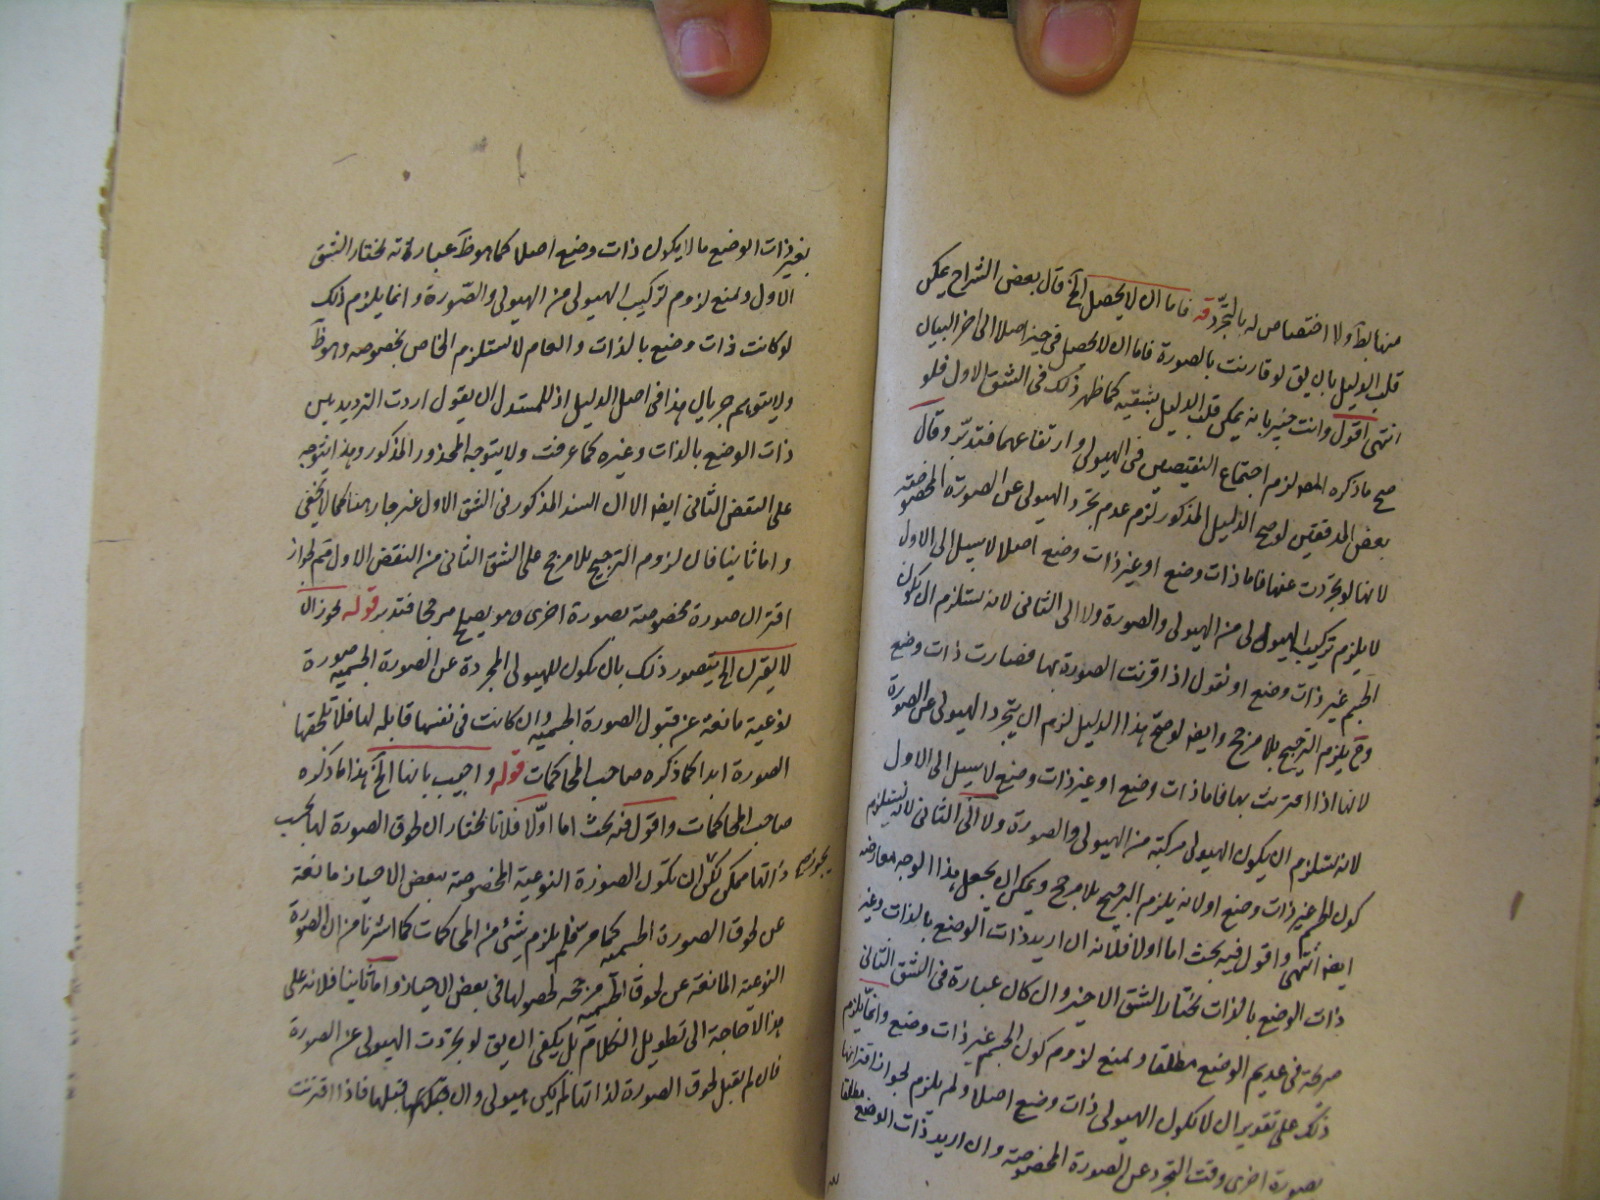 منها بطَ ولا اختصاص له بالتجرد قه فاما ان لا يحصل الخ قال بعض الشراح يمكن
قلب الدليل بان يق لو قارنت بالصورة فاما ان لا يحصل في حيز اصلا الى اخر البيان
انتهى اقول وانت خبير بانه يمكن قلب الدليل بشقيه كما ظهر ذلك في الشق الاول فلو
صح ما ذكره المصه لزم اجتماع النقيضين في الهيولى وارتفاعهما فتدبر وقال
بعض المدققين لو صح الدليل المذكور لزم عدم تجرد الهيولى عن الصورة المخصوصة
لانها لو تجردت عنها فاما ذات وضع او غير ذات وضع اصلا لا سبيل الى الاول
لا يلزم تركيب الهيولى من الهيولى والصورة ولا الى الثاني لانه يستلزم ان يكون
الجسم غير ذات وضع او نقول اذا اقرنت الصورة بها فصارت ذات وضع
وح يلزم الترجيح بلا مرجح وايضه لو صح هذا الدليل لزم ان يتجرد الهيولى عن الصورة
لانها اذا اقترنت بها فاما ذات وضع او غير ذات وضع لا سبيل الى الاول
لانه يستلزم ان يكون الهيولى مركبة من الهيولى والصورة ولا الى الثاني لانه يستلزم
كون الجسم غير ذات وضع او لانه يلزم الترجيح بلا مرجح ويمكن ان يجعل هذا الوجه معارضه
ايضه انتهى واقول فيه بحث اما اولا فلانه ان اريد ذات الوضع بالذات وغير
ذات الوضع بالذات نختار الشق الاخير وان كان عبارة في الشق الثاني
صريحة في عديم الوضع مطلقا ونمنع لزوم كون الجسم غير ذات وضع وانما يلزم
ذلك على تقدير ان لا تكون الهيولى ذات وضع اصلا ولم يلزم لجواز اقترانها
بصورة اخرى وقت التجرد عن الصورة المخصوصة وان اريد ذات الوضع مطلقا
بغير ذات الوضع ما لا يكون ذات وضع اصلا كما هو ظَ عبارته نختار الشق
الاول ونمنع لزوم تركيب الهيولى من الهيولى والصورة وانما يلزم ذلك
لو كانت ذات وضع بالذات والعام لا يستلزم الخاص بخصوصه وهو ظَ
ولا يتوهم جريان هذا في اصل الدليل اذ للمستدل ان يقول اردت الترديد بين
ذات الوضع بالذات وغيره كما عرفت ولا يتوجه المحذور المذكور وهذا يتوجه
على النقض الثاني ايضه الا ان السند المذكور في الشق الاول غير جار هنا كما لا يخفى
واما ثانيا فان لزوم الترجيح بلا مرجح على الشق الثاني من النقض الاول مم لجواز
اقتران صورة مخصوصة بصورة اخرى وهو يصلح مرجحا فتدبر قوله لجواز ان
لا يقترن الخ يتصور ذلك بان تكون للهيولى المجردة عن الصورة الجسمية صورة
نوعية مانعة عن قبول الصورة الجسمية وان كانت في نفسها قابله لها فلا تلحقها
الصورة ابدا كما ذكره صاحب المحاكمات قوله واجيب بانها الخ هذا ما ذكره
صاحب المحاكمات واقول فيه بحث اما اولا فلانا نختار ان لحوق الصورة لها بحسب
ذاتها ممكن لكن ان تكون الصورة النوعية المخصوصة ببعض الاحياز مانعة
يجوز
عن لحوق الصورة الجسمية كما مر فلم يلزم شئ من المحاكمات كما اشرنا من ان الصورة
النوعية المانعة عن لحوق الجسمية مرجحه لحصولها في بعض الاحياز واما ثانيا فلانه على
هذا لا حاجة الى تطويل الكلام بل يكفي ان يق لو تجردت الهيولى عن الصورة
فان لم يقبل لحوق الصورة لذاتها لم يكن هيولى وان قبلها فاذا اقترنت